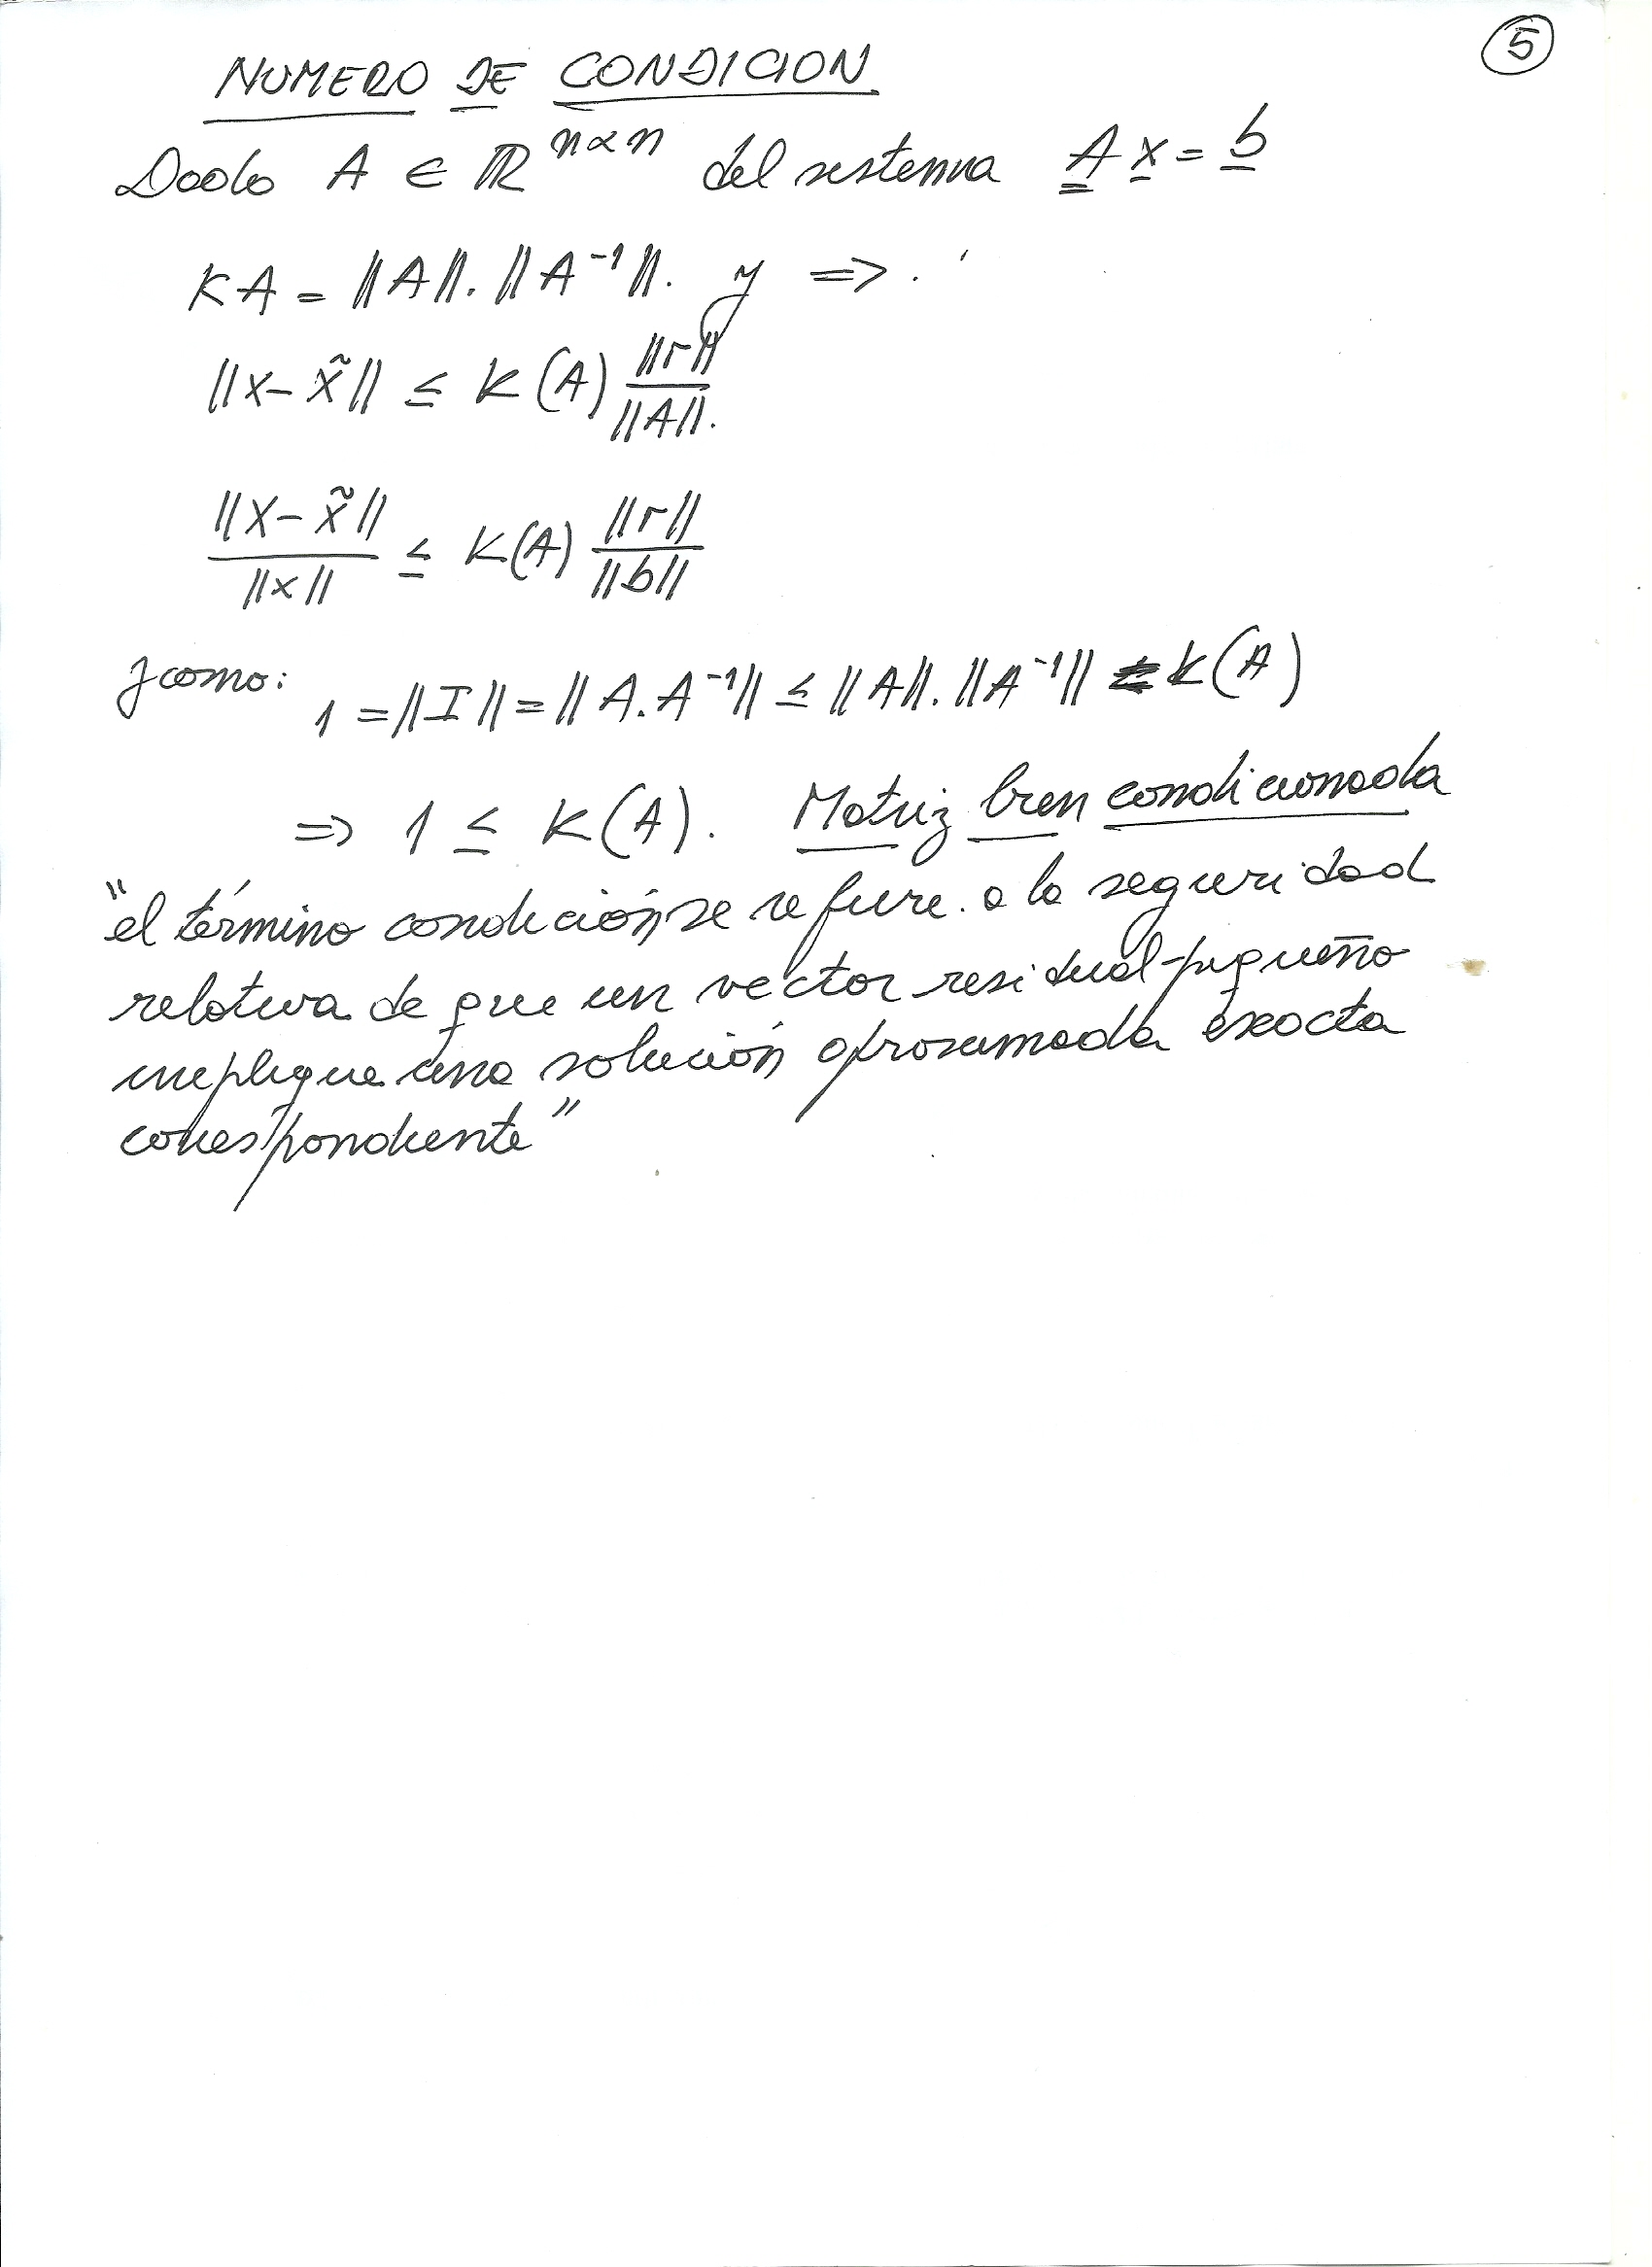 5
NUMERO DE CONDICION
Dado A ∈ ℝ^{n×n} del sistema A x = b
KA = ||A||. ||A⁻¹||. y =>.
||x - x̃|| ≤ K(A) ||r|| / ||A||.
||x - x̃|| / ||x|| ≤ K(A) ||r|| / ||b||
y como:
1 = ||I|| = ||A. A⁻¹|| ≤ ||A||. ||A⁻¹|| = K(A)
=> 1 ≤ K(A). Matriz bien condicionada
"el término condición se refiere. a la seguridad
relativa de que un vector residual pequeño
implique una solución aproximada exacta
correspondiente"